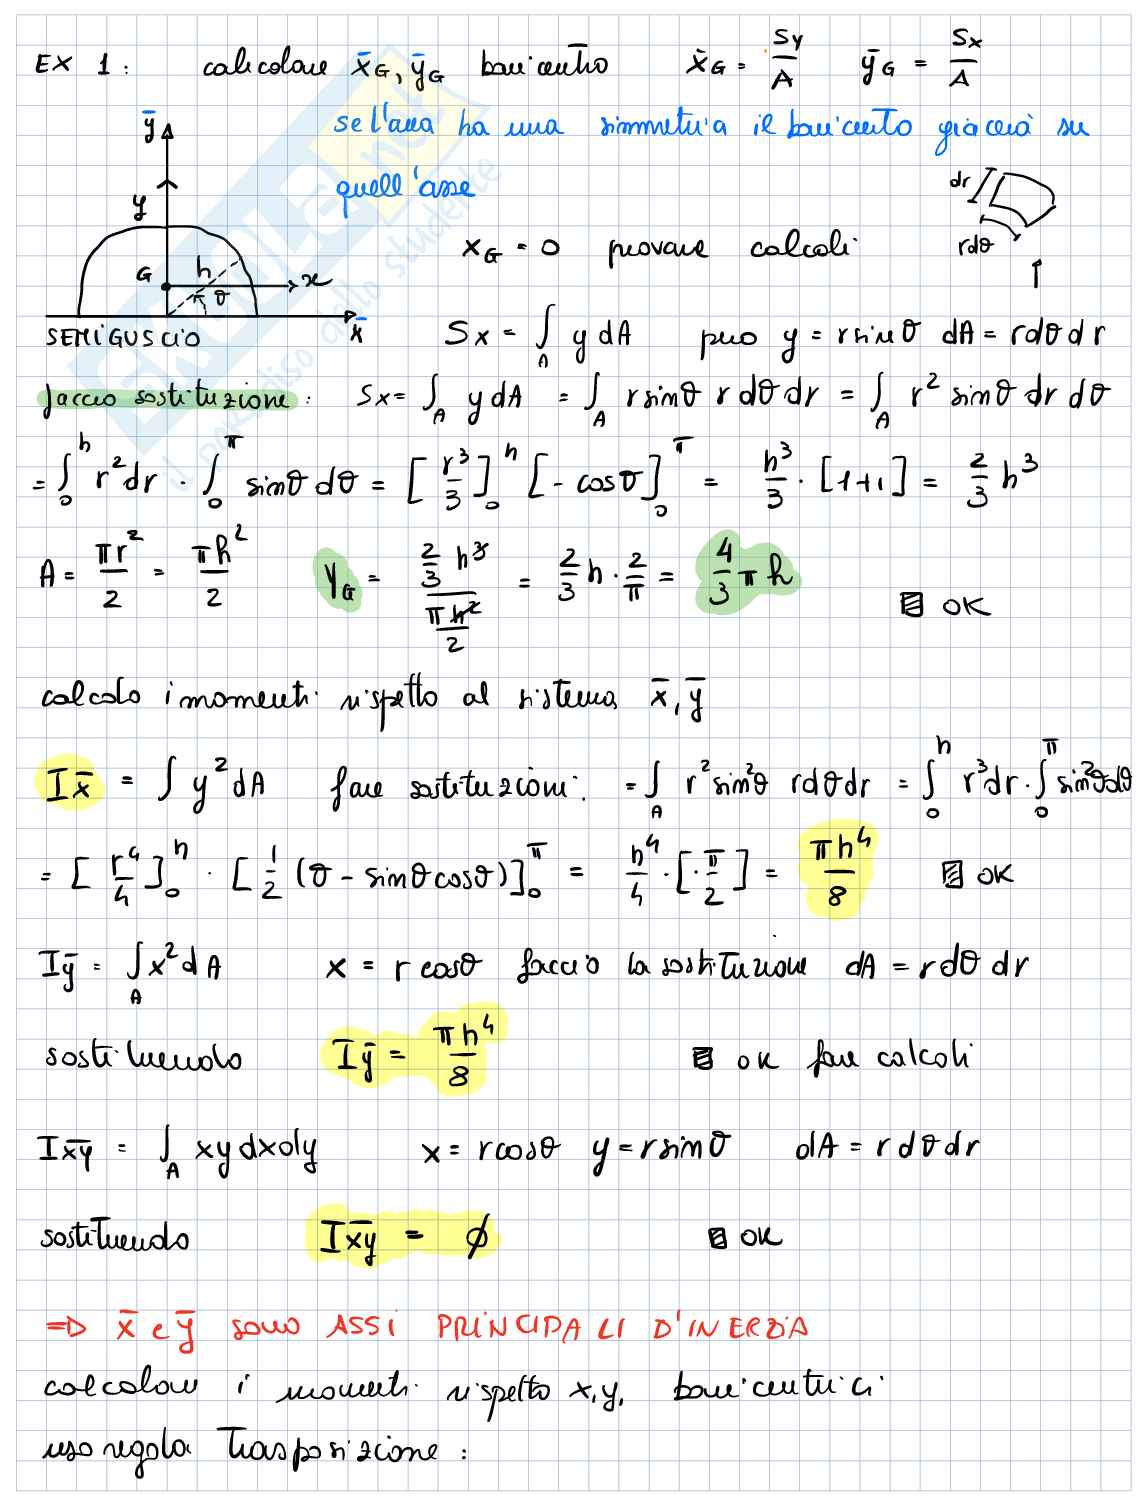 EX 1: calcolare x̄G, ȳG baricentro x̄G = Sy/A ȳG = Sx/A
se l'area ha una simmetria il baricentro giacerà su
quell'asse
ȳ
y
G h θ x
x̄
SEMIGUSCIO
dr
rdθ
xG = 0 provare calcoli
Sx = ∫_A y dA però y = r sinθ dA = r dθ dr
faccio sostituzione: Sx = ∫_A y dA = ∫_A r sinθ r dθ dr = ∫_A r² sinθ dr dθ
= ∫_0^h r² dr · ∫_0^π sinθ dθ = [r³/3]_0^h [-cosθ]_0^π = h³/3 · [1+1] = 2/3 h³
A = πr²/2 = πh²/2 yG = (2/3 h³)/(πh²/2) = 2/3 h · 2/π = 4/3 π h OK
calcolo i momenti rispetto al sistema x̄, ȳ
Ix̄ = ∫ y² dA fare sostituzioni: = ∫_A r² sin²θ r dθ dr = ∫_0^h r³ dr · ∫_0^π sin²θ dθ
= [r⁴/4]_0^h · [1/2 (θ - sinθ cosθ)]_0^π = h⁴/4 · [π/2] = πh⁴/8 OK
Iȳ = ∫_A x² dA x = r cosθ faccio la sostituzione dA = r dθ dr
sostituendo Iȳ = πh⁴/8 OK fare calcoli
Ix̄ȳ = ∫_A xy dx dy x = r cosθ y = r sinθ dA = r dθ dr
sostituendo Ix̄ȳ = ∅ OK
⇒ x̄ e ȳ sono ASSI PRINCIPALI D'INERZIA
calcolare i momenti rispetto x, y, baricentrici
uso regola trasposizione: